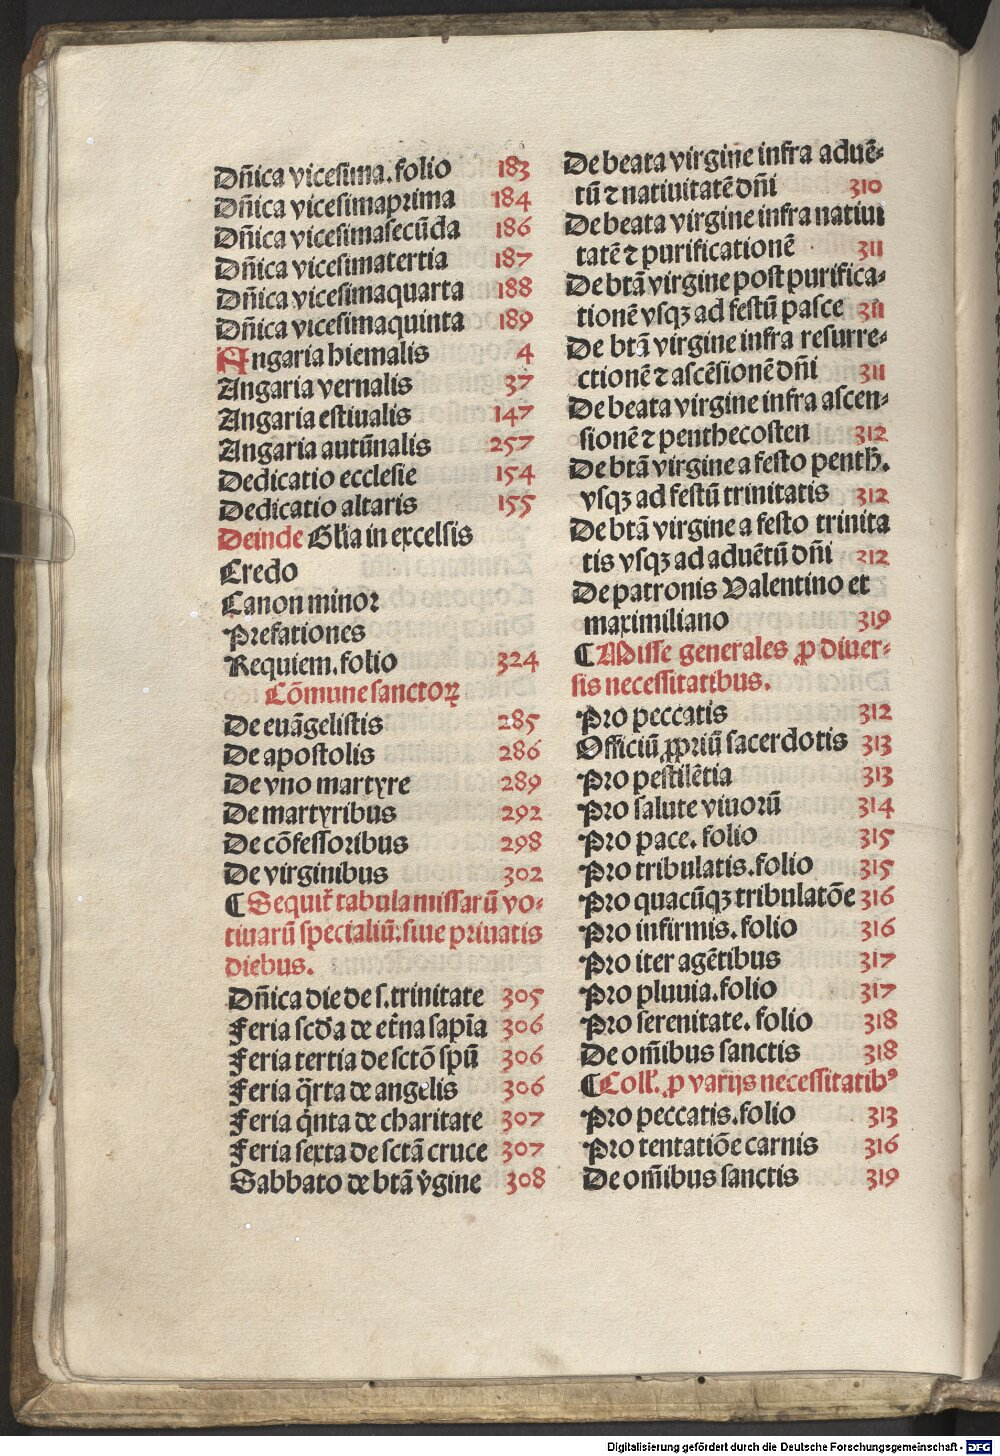 Dñica vicesima. folio 183
Dñica vicesimaprima 184
Dñica vicesimasecūda 186
Dñica vicesimatertia 187
Dñica vicesimaquarta 188
Dñica vicesimaquinta 189
Angaria hiemalis 4
Angaria vernalis 37
Angaria estiualis 147
Angaria autūnalis 257
Dedicatio ecclesie 154
Dedicatio altaris 155
Deinde Gl'ia in excelsis
Credo
Canon minor
Prefationes
Requiem. folio 324
Cōmune sanctoꝝ
De euāgelistis 285
De apostolis 286
De vno martyre 289
De martyribus 292
De cōfessoribus 298
De virginibus 302
¶ Sequit̄ tabula missarū vo⸗
tiuarū specialiū: siue priuatis
diebus.
Dñica die de s. trinitate 305
Feria scd'a de et̄na sapīa 306
Feria tertia de sctō spū 306
Feria q̄rta de angelis 306
Feria q̄nta de charitate 307
Feria sexta de sctā cruce 307
Sabbato de btā v̄gine 308
De beata virgine infra aduē⸗
tū ⁊ natiuitatē dñi 310
De beata virgine infra natiui
tatē ⁊ purificationē 311
De btā virgine post purifica⸗
tionē vsqꝫ ad festū pasce 311
De btā virgine infra resurre⸗
ctionē ⁊ ascēsionē dñi 311
De beata virgine infra ascen⸗
sionē ⁊ penthecosten 312
De btā virgine a festo penth.
vsqꝫ ad festū trinitatis 312
De btā virgine a festo trinita
tis vsqꝫ ad aduētū dñi 312
De patronis Valentino et
maximiliano 319
¶ Misse generales ꝓ diuer⸗
sis necessitatibus.
Pro peccatis 312
Officiū ꝓpriū sacerdotis 313
Pro pestilētia 313
Pro salute viuorū 314
Pro pace. folio 315
Pro tribulatis. folio 315
Pro quacūqꝫ tribulatōe 316
Pro infirmis. folio 316
Pro iter agētibus 317
Pro pluuia. folio 317
Pro serenitate. folio 318
De om̄ibus sanctis 318
¶ Coll'. ꝓ varijs necessitatibꝰ
Pro peccatis. folio 313
Pro tentatiōe carnis 316
De om̄ibus sanctis 319
Digitalisierung gefördert durch die Deutsche Forschungsgemeinschaft - DFG